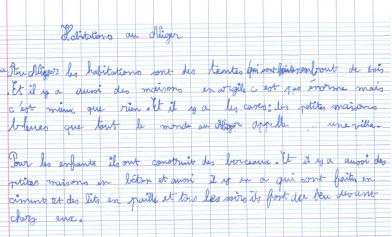 Habitations au Niger
Au Niger les habitations sont des tentes qui sont faites en bout de bois.
Et il y a aussi des maisons en argile c est pas énorme mais
c'est mieux que rien. Et il y a les cases: les petites maisons
bleues que tout le monde au Niger appelle une ville.
Pour les enfants ils ont construit des berceaux. Et il y a aussi des
petites maisons en béton et aussi il y en a qui sont faites en
ciment et des lits en paille et tous les soirs ils font du feu devant
chez eux.